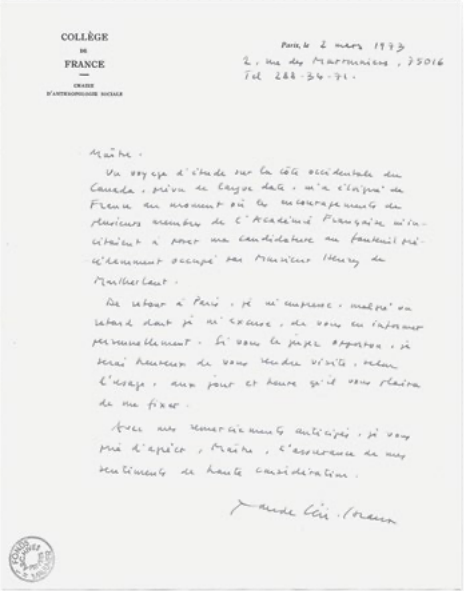 COLLÈGE
DE
FRANCE
CHAIRE
D'ANTHROPOLOGIE SOCIALE
Paris, le 2 mars 1973
2, rue des Marronniers, 75016
Tel 288-34-71.
Maître.
Un voyage d'étude sur la côte occidentale du
Canada, prévu de longue date, m'a éloigné de
France au moment où les encouragements de
plusieurs membres de l'Académie Française m'in-
citaient à poser ma candidature au fauteuil pré-
cédemment occupé par Monsieur Henry de
Montherlant.
De retour à Paris, je m'empresse, malgré un
retard dont je m'excuse, de vous en informer
personnellement. Si vous le jugez opportun, je
serai heureux de vous rendre visite, selon
l'usage, aux jour et heure qu'il vous plaira
de me fixer.
Avec mes remerciements anticipés, je vous
prie d'agréer, Maître, l'assurance de mes
sentiments de haute considération.
Claude Lévi-Strauss
FONDS